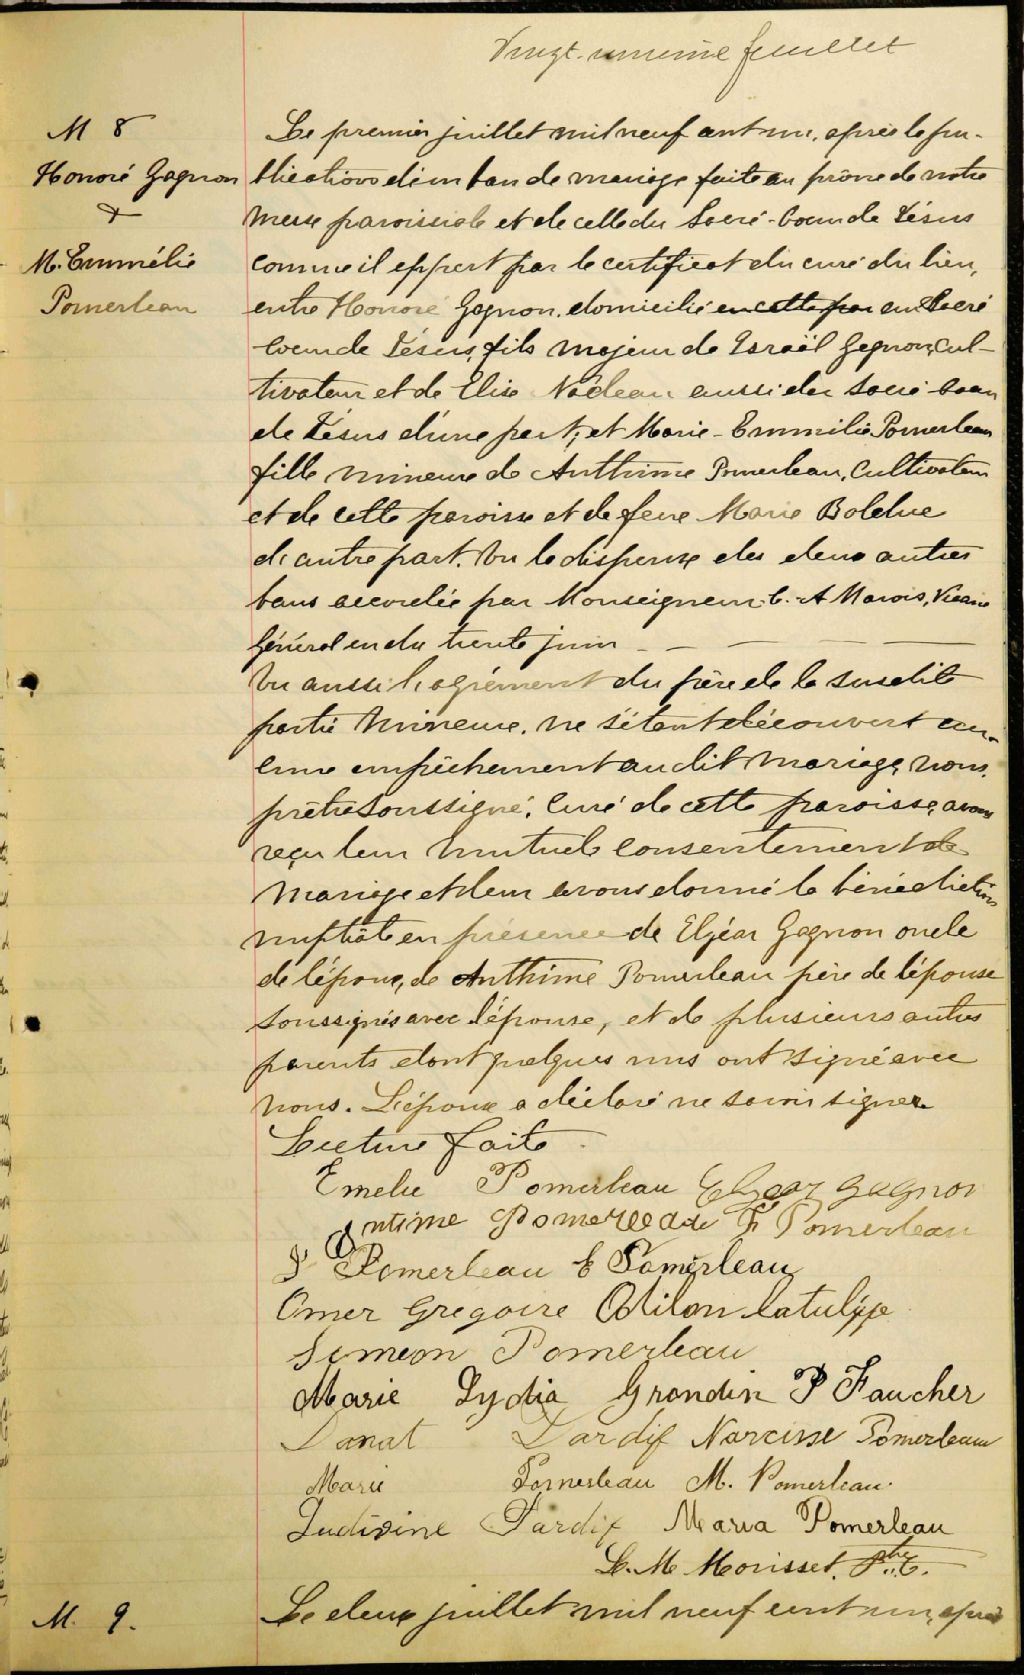 Vingt-unième feuillet
M 8
Honoré Gagnon
&
M. Emmélie
Pomerleau
Le premier juillet mil neuf cent un, après la pu-
blications d'un ban de mariage faite au prône de notre
messe paroissiale et de celle du Sacré-Coeur de Jésus
comme il appert par le certificat du curé du lieu,
entre Honoré Gagnon, domicilié en cette par au Sacré
Coeur de Jésus, fils majeur de Israël Gagnon, cul-
tivateur et de Elise Nadeau aussi du Sacré-Coeur
de Jésus d'une part; et Marie-Emmilie Pomerleau
fille mineure de Anthime Pomerleau, cultivateur
et de cette paroisse et de feue Marie Bolduc
d'autre part. Vu la dispense des deux autres
bans accordée par Monseigneur C. A Marois, Vicaire
Général en du trente juin
Vu aussi l'agrément du père de la susdite
partie mineure, ne s'étant découvert au-
cune empêchement au dit mariage, nous,
prêtre soussigné, curé de cette paroisse, avons
reçu leur mutuel consentement de
mariage et leur avons donné la bénédiction
nuptiale en présence de Elzéar Gagnon oncle
de l'époux, de Anthime Pomerleau père de l'épouse
soussignés avec l'épouse, et de plusieurs autres
parents dont quelques uns ont signé avec
nous. L'époux a déclaré ne savoir signer
Lecture faite.
Emelie Pomerleau Elzear Gagnon
Antime Pomerleau F Pomerleau
J Pomerleau E Pomerleau
Omer Gregoire Odilon Latulippe
Simeon Pomerleau
Marie Lydia Grondin P Faucher
Donat Tardif Narcisse Pomerleau
Marie Pomerleau M. Pomerleau.
Ludivine Tardif Maria Pomerleau
L. M. Morisset, Ptre C.
M. 9.
Le deux juillet mil neuf cent un, après